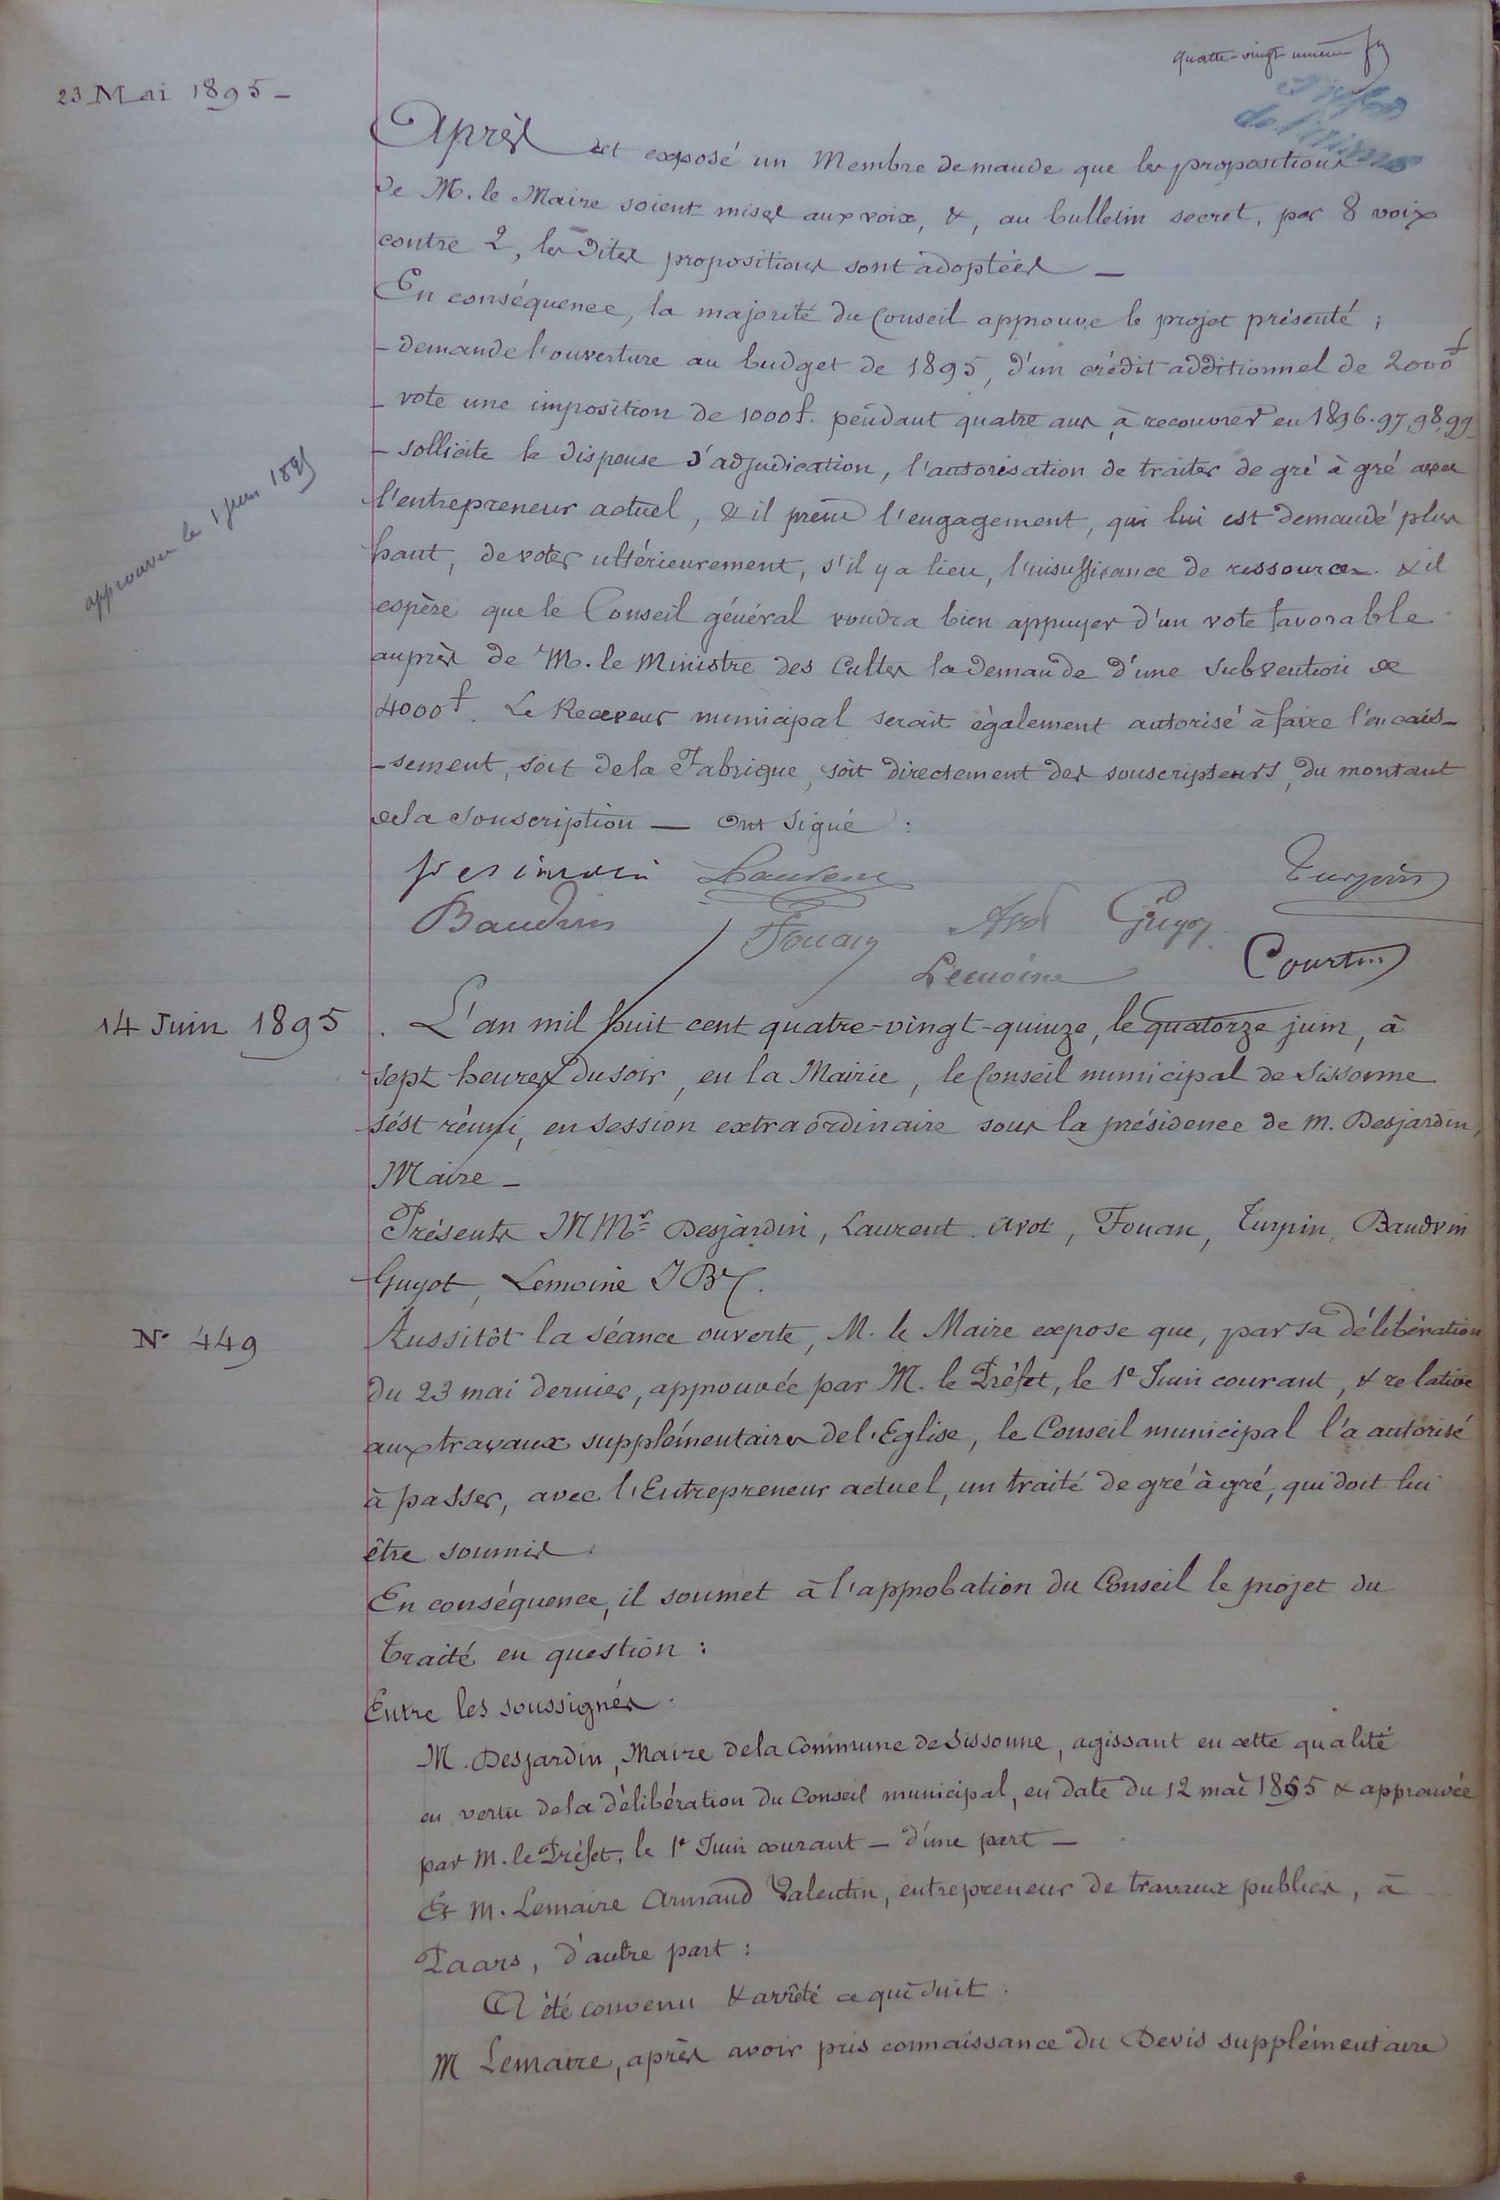 quatre-vingt-neuvième
23 Mai 1895 –
Après cet exposé un Membre demande que les propositions
de M. le Maire soient mises aux voix, &, au bulletin secret, par 8 voix
contre 2, les dites propositions sont adoptées —
En conséquence, la majorité du Conseil approuve le projet présenté ;
– demande l'ouverture au budget de 1895, d'un crédit additionnel de 2000f
– vote une imposition de 1000f. pendant quatre ans, à recouvrer en 1896.97,98,99
– sollicite la dispense d'adjudication, l'autorisation de traiter de gré à gré avec
l'entrepreneur actuel, & il prend l'engagement, qui lui est demandé plus
haut, de voter ultérieurement, s'il y a lieu, l'insuffisance de ressources. & il
espère que le Conseil général voudra bien appuyer d'un vote favorable
approuvée le 1 juin 1895
auprès de M. le Ministre des Cultes la demande d'une subvention de
4000f. Le Receveur municipal serait également autorisé à faire l'encais-
-sement, soit de la Fabrique, soit directement des souscripteurs, du montant
de la souscription — Ont signé :
Desjardin Laurent Turpin
Baudvin Fouan Avot Guyot
Lemoine Courtin
14 Juin 1895
. L'an mil huit cent quatre-vingt-quinze, le quatorze juin, à
sept heures du soir, en la Mairie, le Conseil municipal de Sissonne
s'ést réuni, en session extraordinaire sous la présidence de M. Desjardin,
Maire –
Présents MMrs Desjardin, Laurent. Avot, Fouan, Turpin, Baudvin
Guyot, Lemoine J Bte.
N° 449
Aussitôt la séance ouverte, M. le Maire expose que, par sa délibération
du 23 mai dernier, approuvée par M. le Préfet, le 1e Juin courant, & relative
aux travaux supplémentaires de l'Eglise, le Conseil municipal l'a autorisé
à passer, avec l'Entrepreneur actuel, un traité de gré à gré, qui doit lui
être soumis.
En conséquence, il soumet à l'approbation du Conseil le projet du
traité en question :
Entre les soussignés.
M. Desjardin, Maire de la Commune de Sissonne, agissant en cette qualité
en vertu de la délibération du Conseil municipal, en date du 12 mai 1895 & approuvée
par M. le Préfet, le 1e Juin courant – d'une part –
Et M. Lemaire Armand Valentin, entrepreneur de travaux publics, à
Paars, d'autre part :
A été convenu & arrêté ce qui suit :
M Lemaire, après avoir pris connaissance du Devis supplémentaire